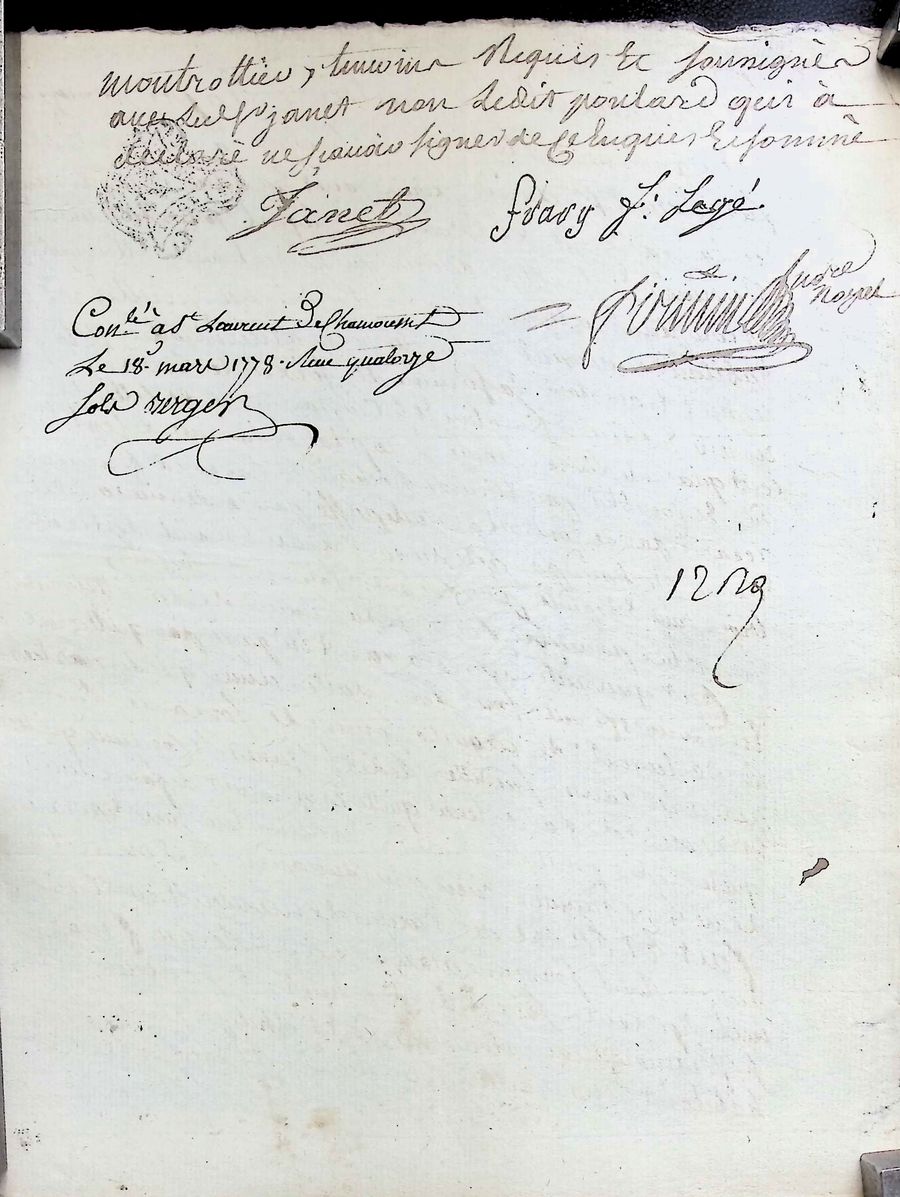 montrottier, temoins Requis Et soussignés
avec ledt Sr janet non Ledit poulard qui à
déclaré ne sçavoir signer de Ce Enquis Et sommé
Janet
fvavy J. Lagé
André
Con.lé à St Laurent De Chamousset
Le 18. mars 1778. Reçu quatorze
sols verger